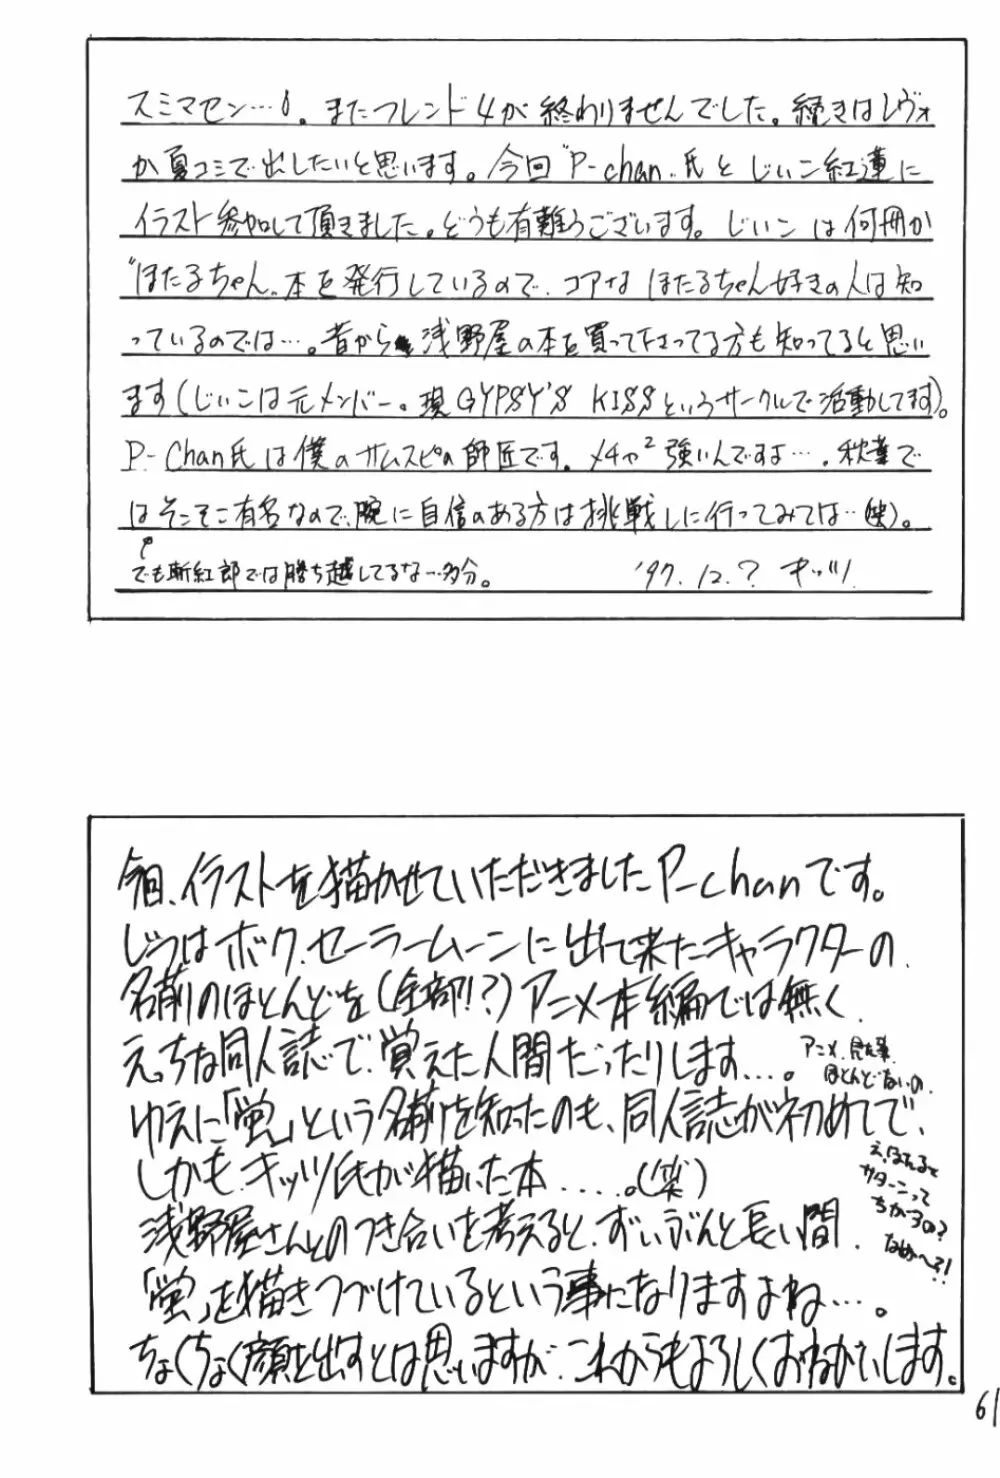 スミマセン…。またフレンド4が終わりませんでした。続きはレヴォ
か夏コミで出したいと思います。今回"P-chan"氏とじいこ紅蓮に
イラスト参加して頂きました。どうも有難うございます。じいこは何冊か
"ほたるちゃん"本を発行しているので、コアなほたるちゃん好きの人は知
っているのでは…。昔から浅野屋の本を買って下さってる方も知ってると思い
ます(じいこは元メンバー。現GYPSY'S KISSというサークルで活動してます)。
P-Chan氏は僕のサムスピの師匠です。メチャ²強いんですよ…。秋葉で
はそこそこ有名なので、腕に自信のある方は挑戦しに行ってみては…(笑)。
でも斬紅郎では勝ち越してるな…多分。 '97.12.? キッツ
今回、イラストを描かせていただきましたP-chanです。
じつはボク、セーラームーンに出て来たキャラクターの
名前のほとんどを(全部!?)アニメ本編では無く
えっちな同人誌で覚えた人間だったりします…。
アニメ、見た事
ほとんどないの
ゆえに「蛍」という名前を知ったのも、同人誌が初めてで、
しかもキッツ氏が描いた本……。(笑)
え、ほたると
サターンって
ちがーうの?
なめ〜?!
浅野屋さんとのつき合いを考えると、ずいぶんと長い間、
「蛍」を描きつづけているという事になりますよね…。
ちょくちょく顔を出すとは思いますが、これからもよろしくおねがいします。
61